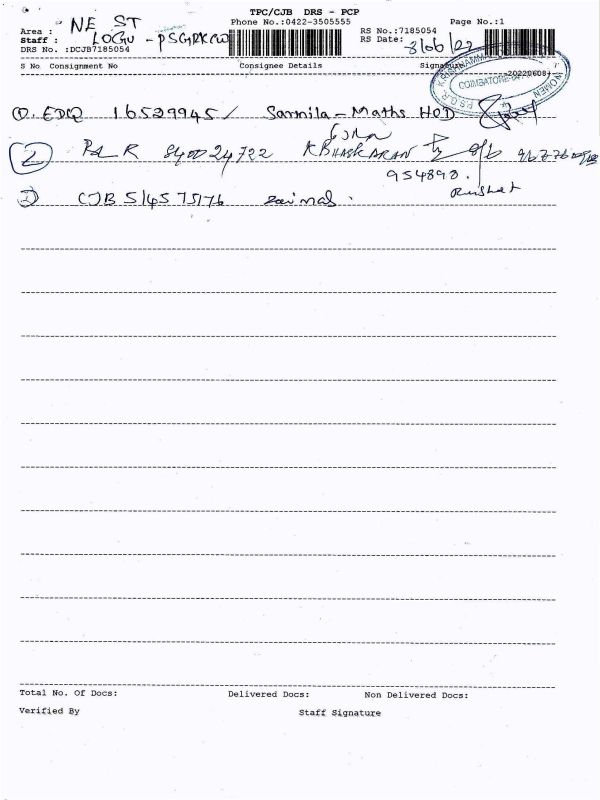 TPC/CJB DRS - PCP
Area : NE ST
Phone No.:0422-3505555
Page No.:1
Staff : LOGU - PSGRKCW
RS No.:7185054
RS Date: 8/06/22
DRS No. :DCJB7185054
S No Consignment No Consignee Details Signature
20220608
COIMBATORE
WOMEN
P.S.G.R.
①. EDQ 165299451 Sarmila - Maths HOD
② 840024722 K BHASKARAN
954898.
③ CJB 514575176
Total No. Of Docs: Delivered Docs: Non Delivered Docs:
Verified By Staff Signature